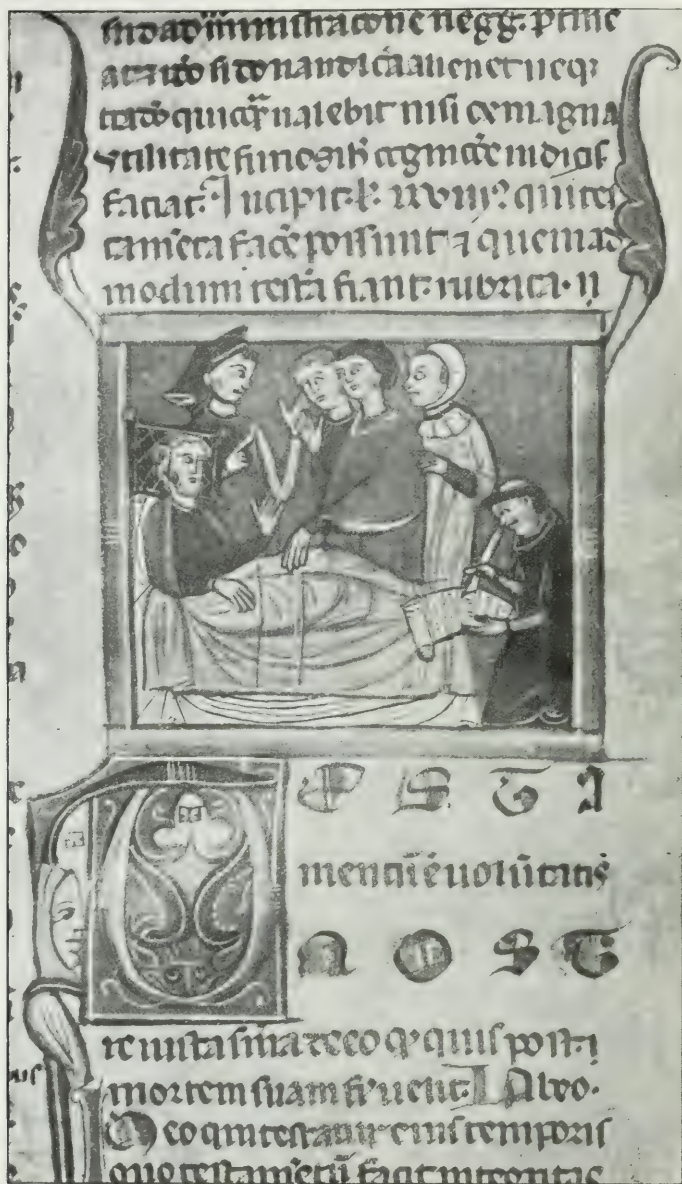 administracōne negg. ptine
at si donandi cāa alienet neq;
quicq̄ ualebit nisi ex magna
utilitate iudicis
faciat. Incipit. l. xxviii. qui tes
tam̄ta facē possunt ⁊ quemad
modum testā fiant. rubrica. ii
T E S T A
mentū ē uolūtatis
N O S T
re iusta sn̄ia de eo qͥ quis post
mortem suam fiͥ uelit. Labeo.
In eo qui testatur eius temporis
quo testam̄tū facit integritas